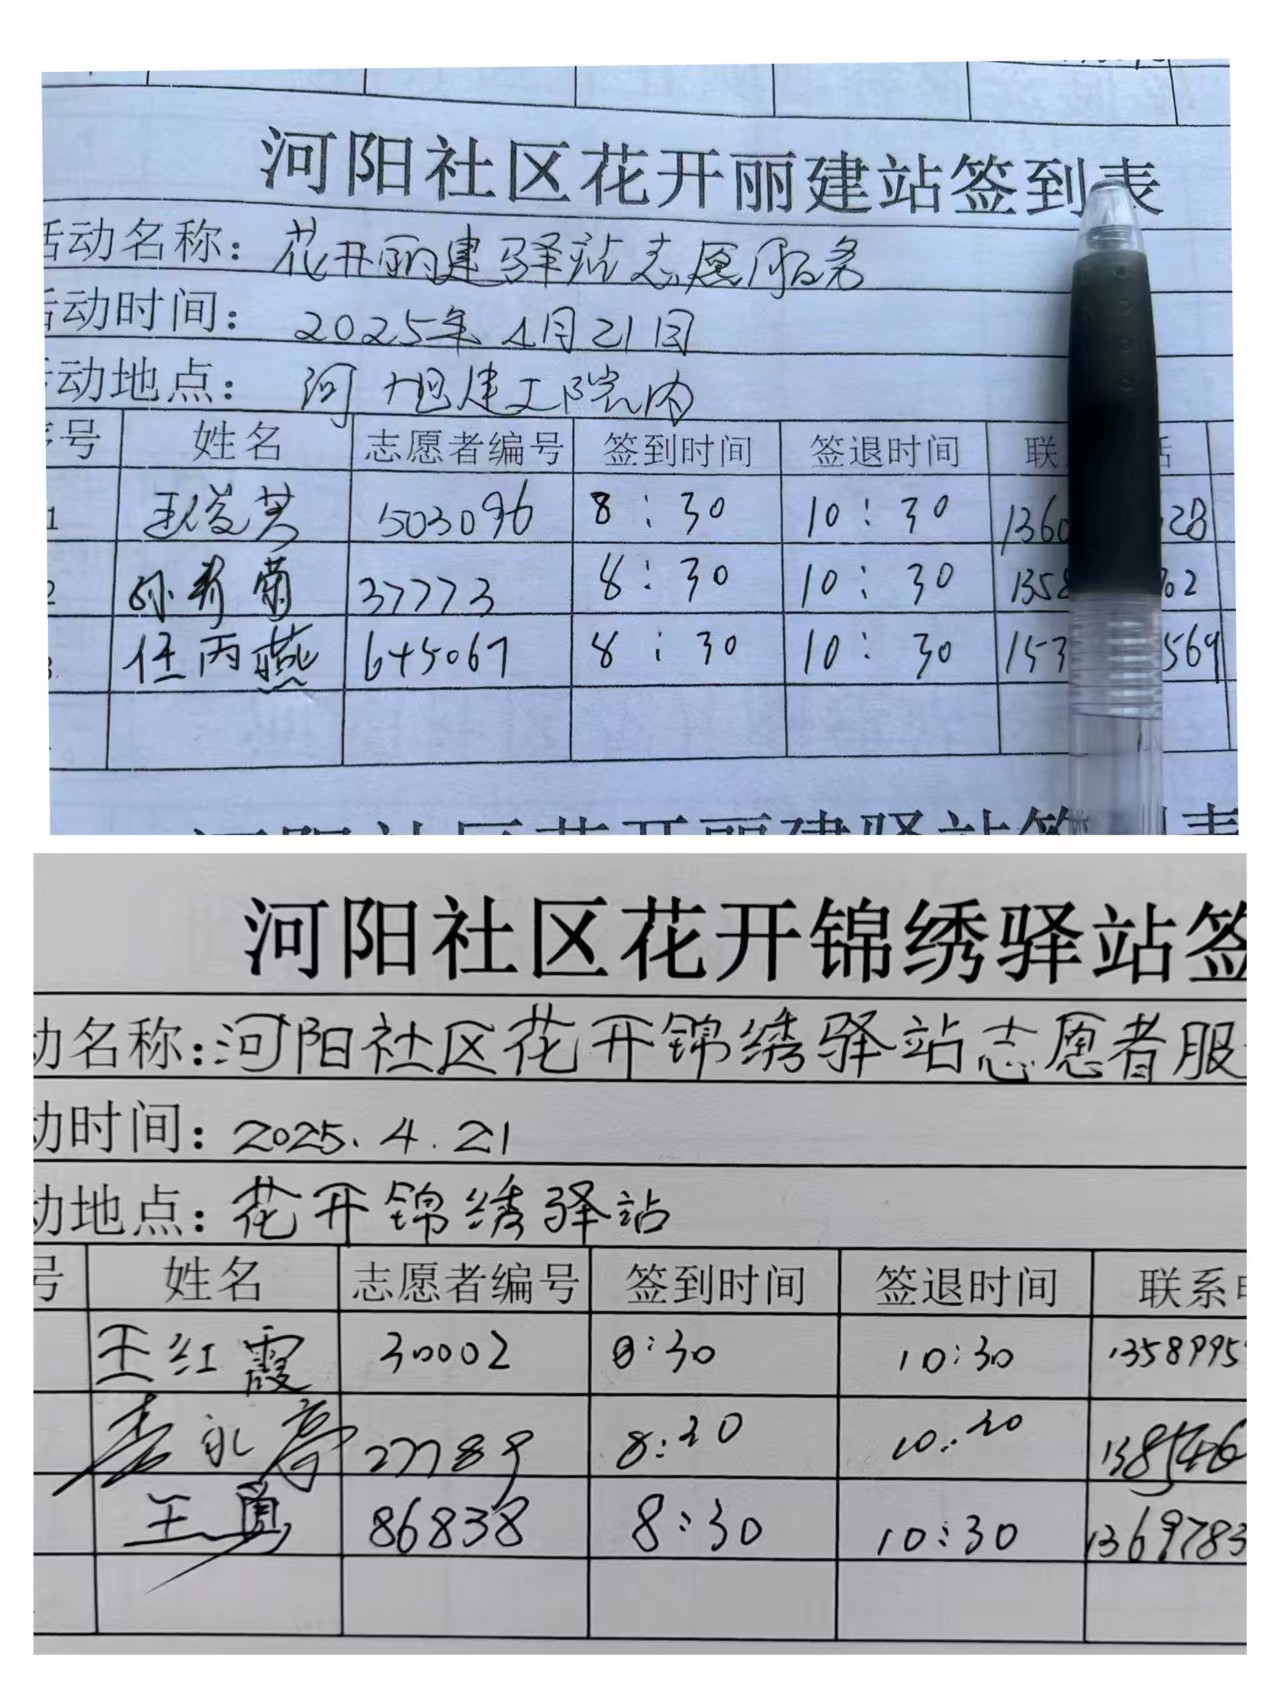 河阳社区花开丽建站签到表
活动名称：花开丽建驿站志愿服务
活动时间：2025年4月21日
动地点：河旭建工院内
序号 姓名 志愿者编号 签到时间 签退时间 联 话
1 王俊芳 503096 8:30 10:30 1360 528
2 孙秀菊 37773 8:30 10:30 1358 702
3. 任丙燕 645067 8:30 10:30 153 569
河阳社区花开丽建驿站签 表
河阳社区花开锦绣驿站签
动名称：河阳社区花开锦绣驿站志愿者服
动时间：2025.4.21
动地点：花开锦绣驿站
号 姓名 志愿者编号 签到时间 签退时间 联系电
王红霞 30002 8:30 10:30 1358995
永 27789 8:30 10:30 138546
王勇 86838 8:30 10:30 1369783